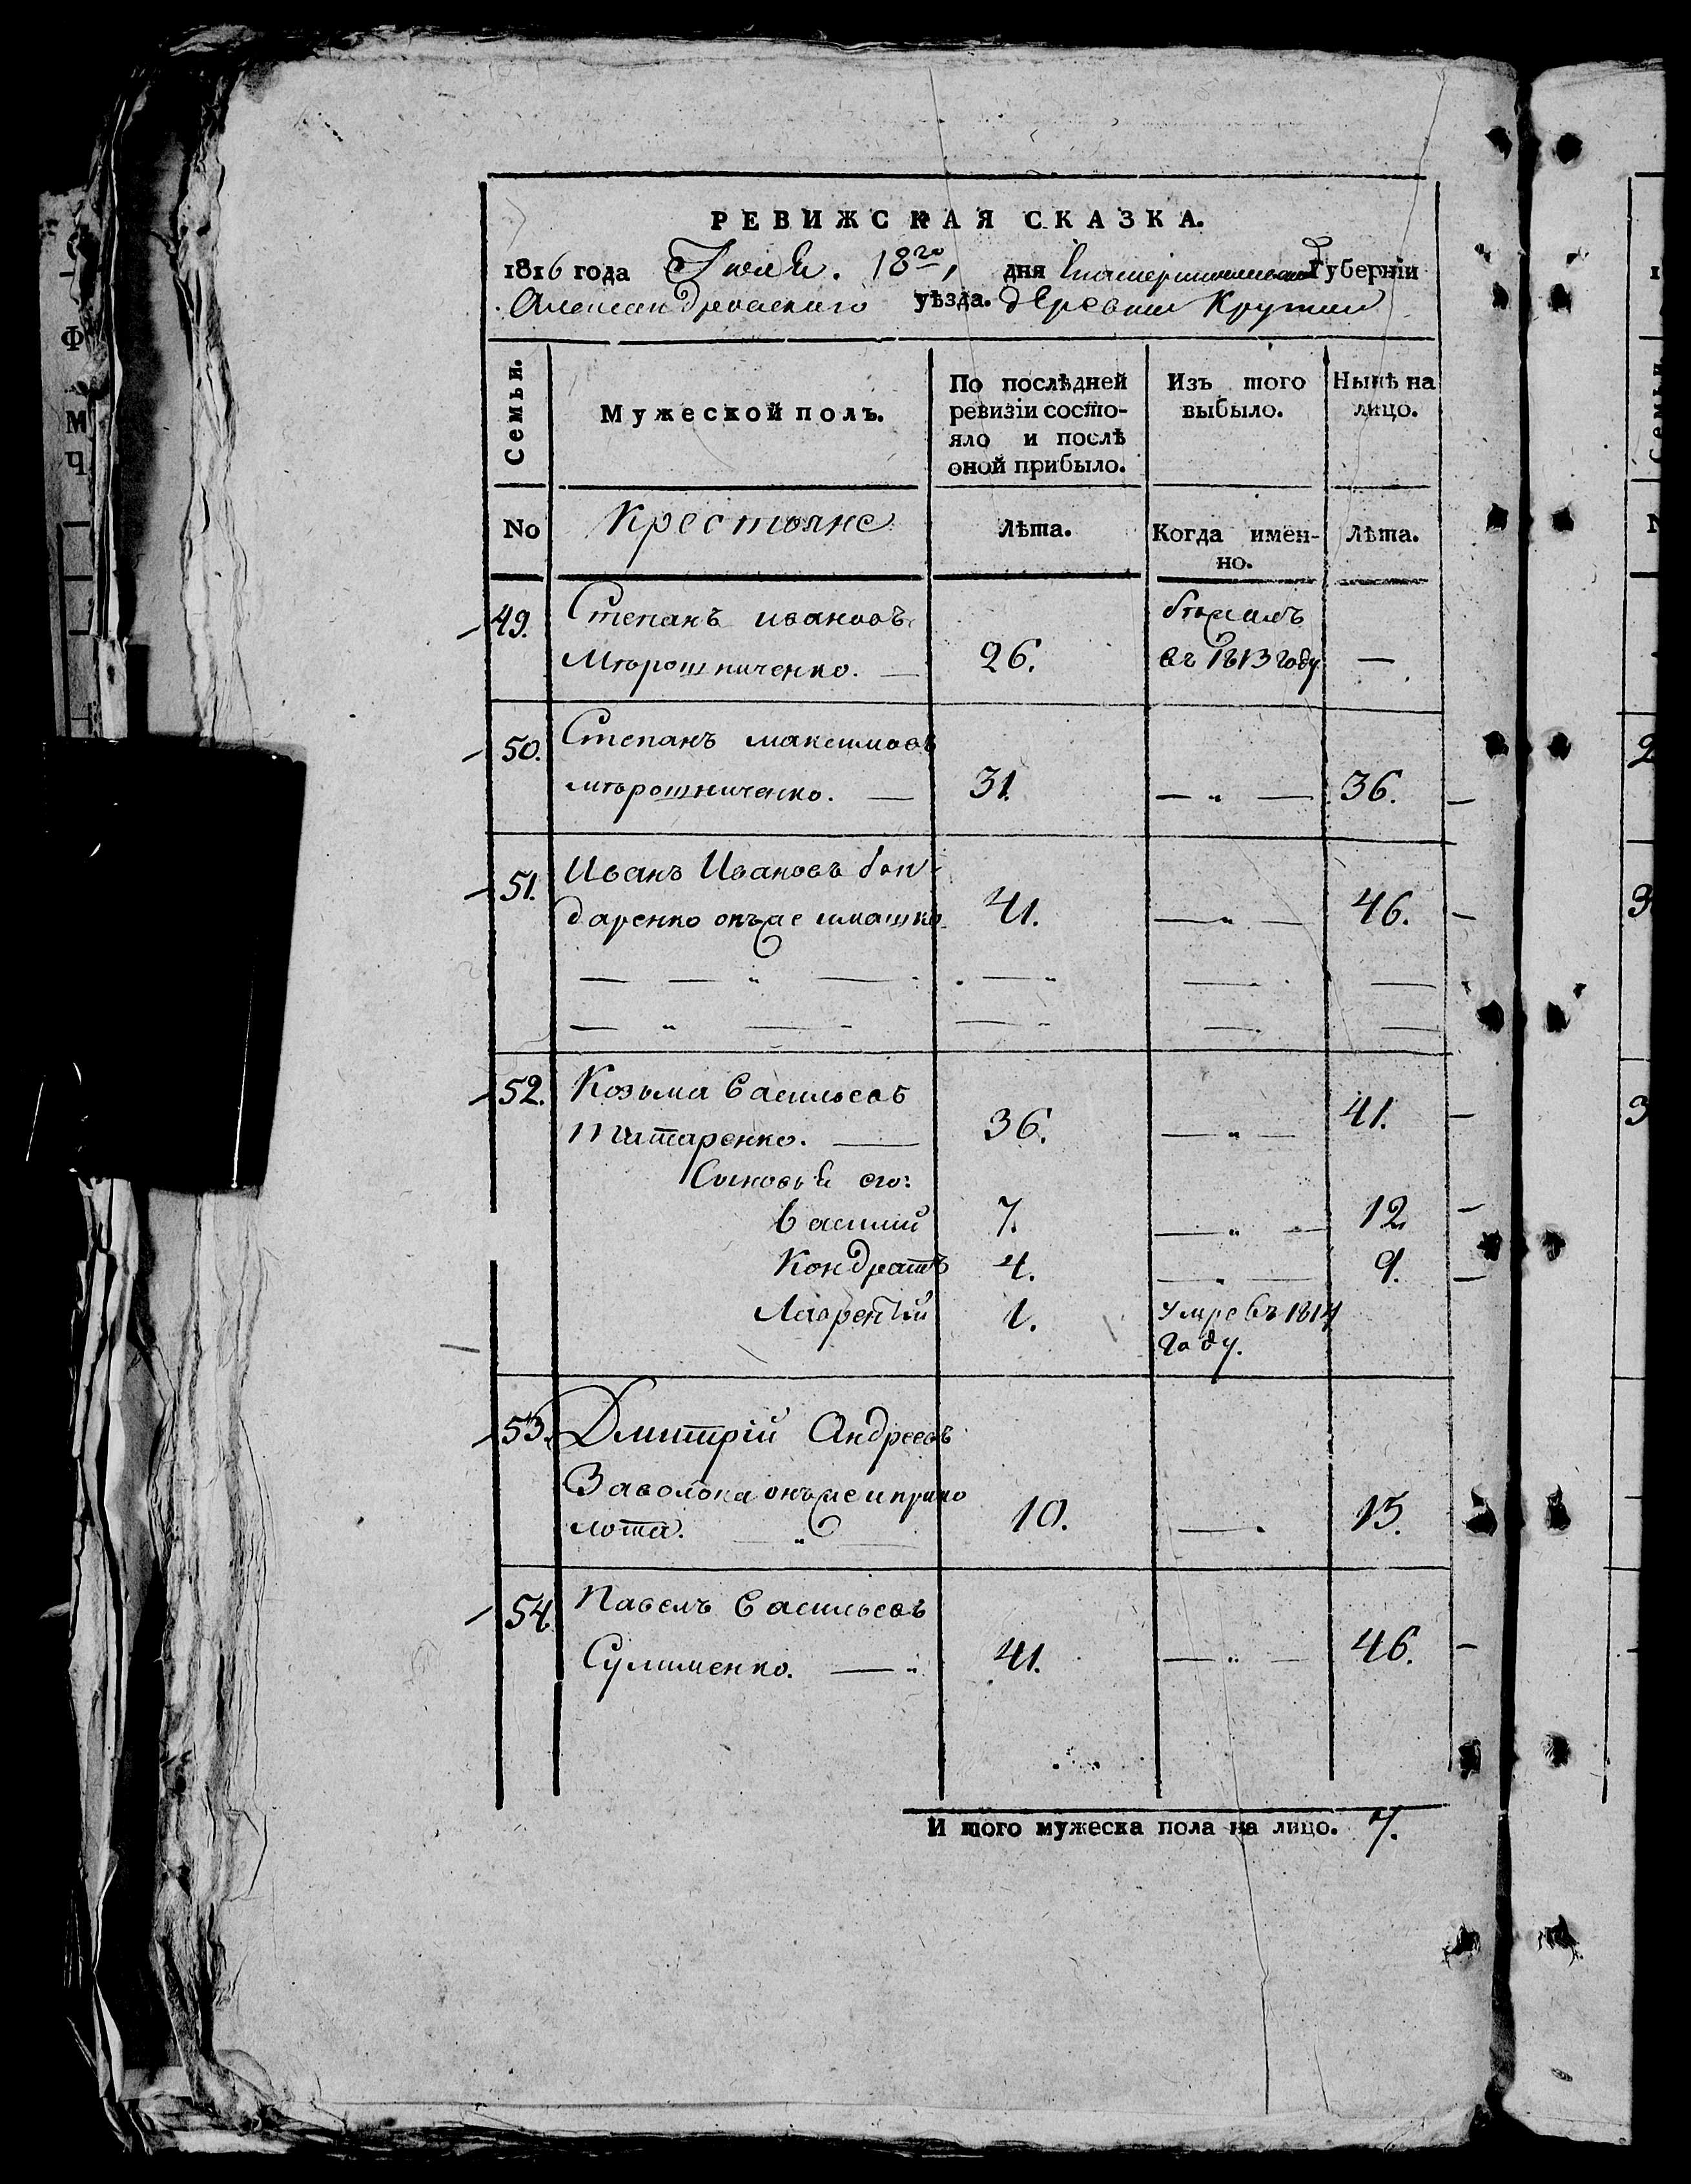 РЕВИЖСКАЯ СКАЗКА.
1816 года Июля. 18го, дня Губерніи
Александровскаго уѣзда. деревни Крутии
Семьи.
Мужеской полъ.
По послѣдней ревизіи состо-
яло и послѣ
оной прибыло.
Изъ того
выбыло.
Нынѣ на
лицо.
No
Крестьяне
Лѣта.
Когда имен-
но.
Лѣта.
49. Степанъ ивановъ бѣжалъ
Мѣрошниченко. — 26. въ 1813 году —
50. Степанъ максимовъ
мѣрошниченко. — 31. — " — 36.
51. Иванъ Ивановъ бон-
даренко онъже 41. — " — 46.
52. Козьма Васильевъ
Титаренко. — 36. — " — 41.
Сыновья его:
Василий 7. — " — 12
Кондратъ 4. — " — 9.
Лаврентий 1. умре въ 1814
году.
53. Дмитрій Андреевъ
Заволока онъже и
10. — 15.
54 Павелъ Васильевъ
Сулименко. — " 41. — " — 46.
И того мужеска пола на лицо. 7.
Ф
М
Ч